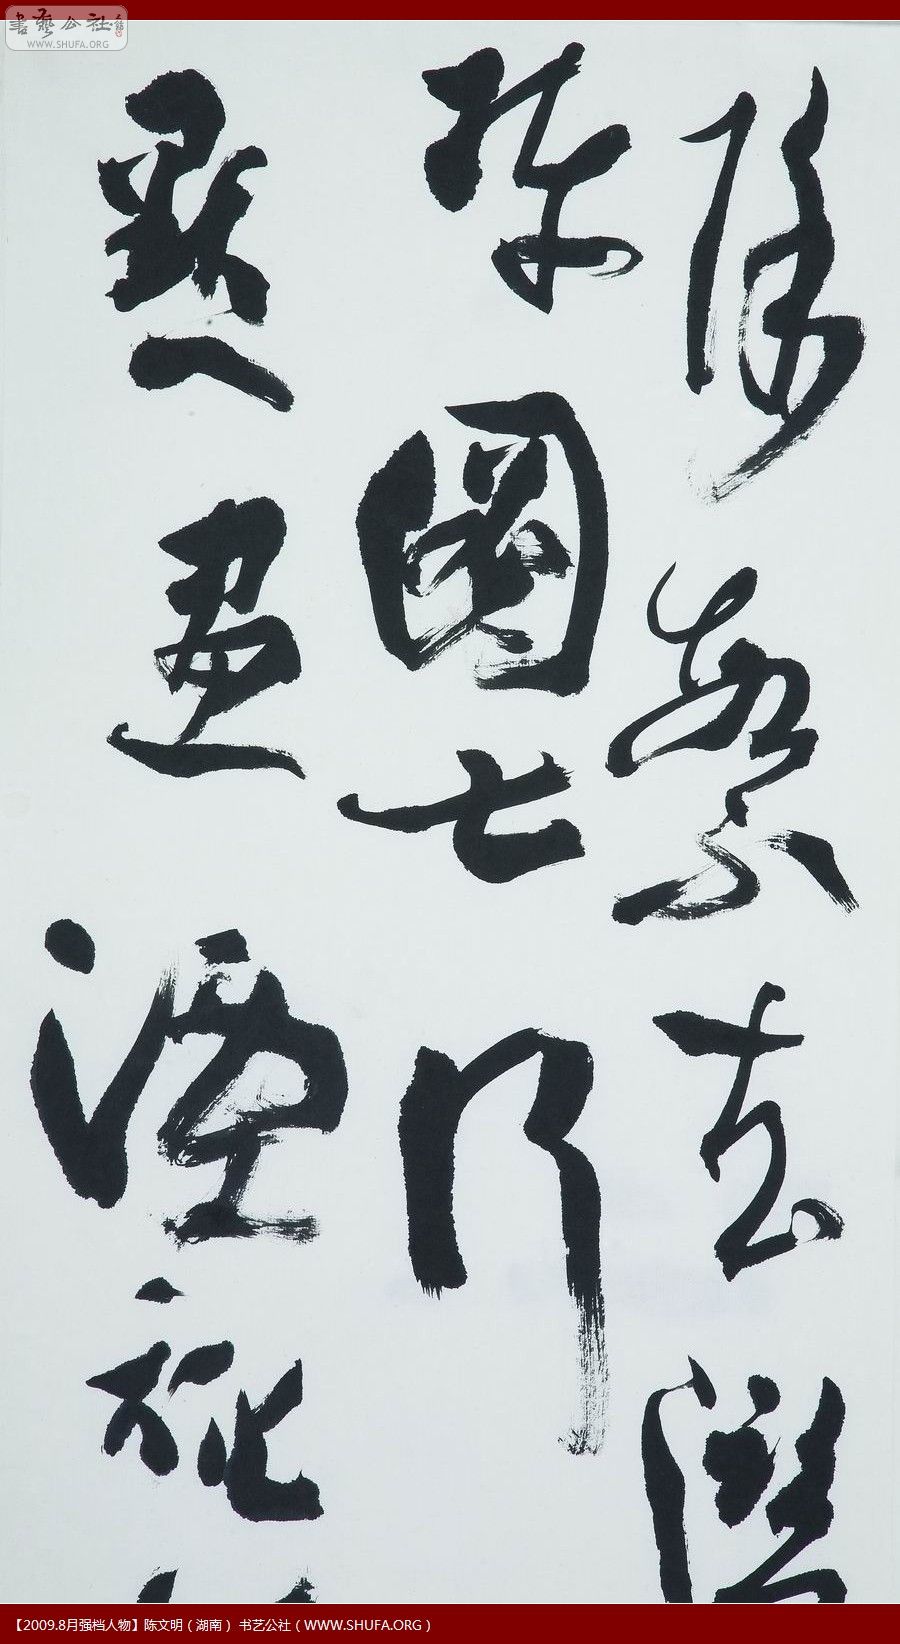 書藝公社
WWW.SHUFA.ORG
除繁去濫
陣圖七行
點畫湮訛
【2009.8月强档人物】陈文明（湖南） 书艺公社（WWW.SHUFA.ORG）